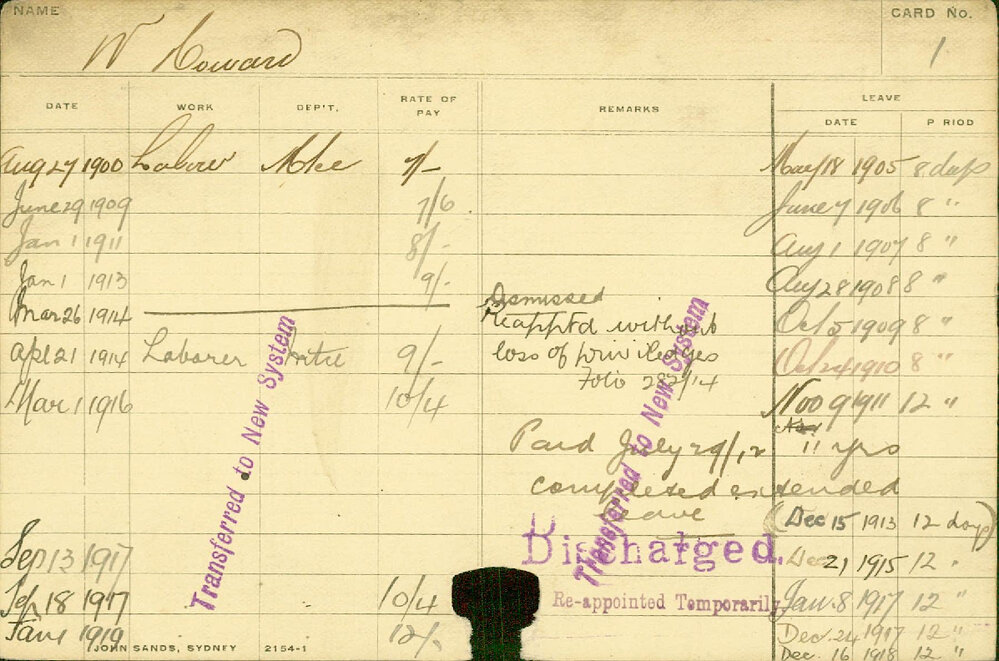 NAME
W Coward
CARD No.
1
DATE WORK DEP'T. RATE OF PAY REMARKS LEAVE
DATE P RIOD
Aug 27 1900 Labour 7/- May 18 1905 8 days
June 29 1909 7/6 June 7 1906 8 "
Jan 1 1911 8/- Aug 1 1907 8 "
Jan 1 1913 9/- Aug 28 1908 8 "
Mar 26 1914 Dismissed
Reapptd without Oct 5 1909 8 "
Apl 21 1914 Laborer 9/- loss of priviledges Oct 24 1910 8 "
Folio 282/14
Mar 1 1916 10/4 Nov 9 1911 12 "
Paid July 29/12 11 yrs
completed extended
leave
(Dec 15 1913 12 days)
Discharged.
Sep 13 1917 Dec 21 1915 12 "
Sep 18 1917 10/4 Re-appointed Temporarily Jan. 8 1917 12 "
Jan 1 1919 12/- Dec. 24 1917 12 "
Dec. 16 1918 12 "
Transferred to New System
Transferred to New System
JOHN SANDS, SYDNEY 2154-1